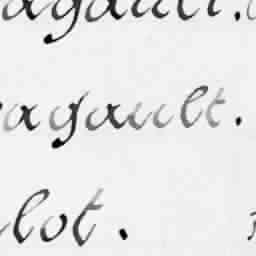 agault.
agault.
lot.